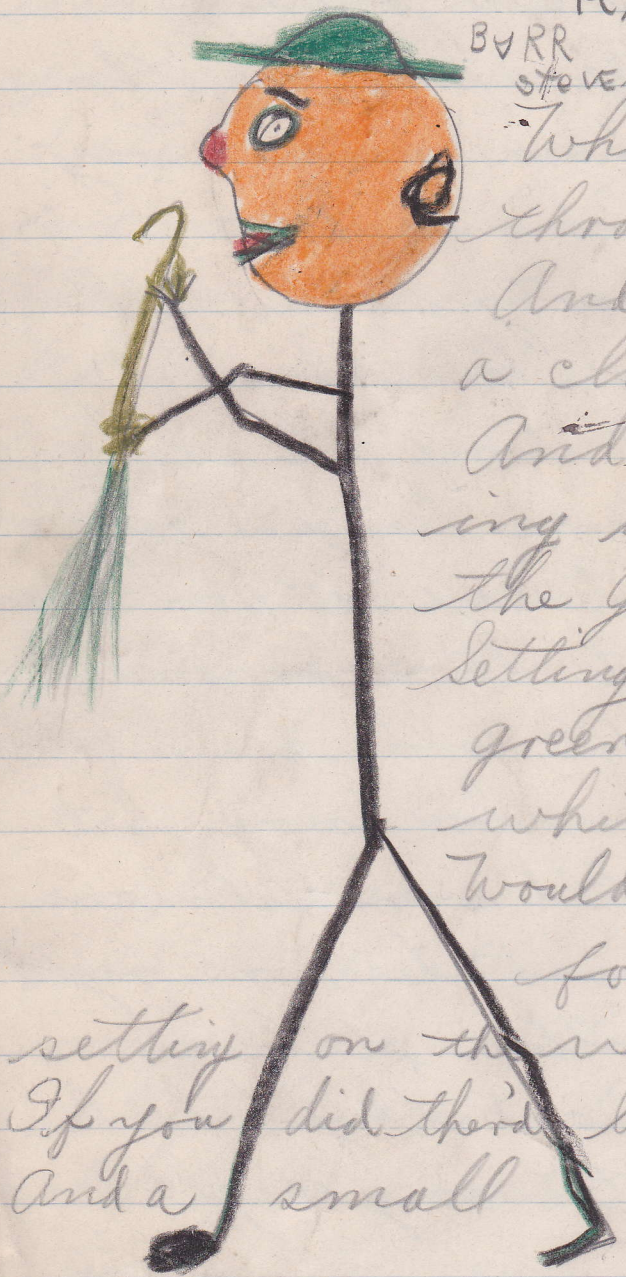 BARR
STEVE
Wh
thro
And
a cl
And
ing
the G
Setting
green
whi
Would
fo
setting on the w
If you did ther'd b
And a small